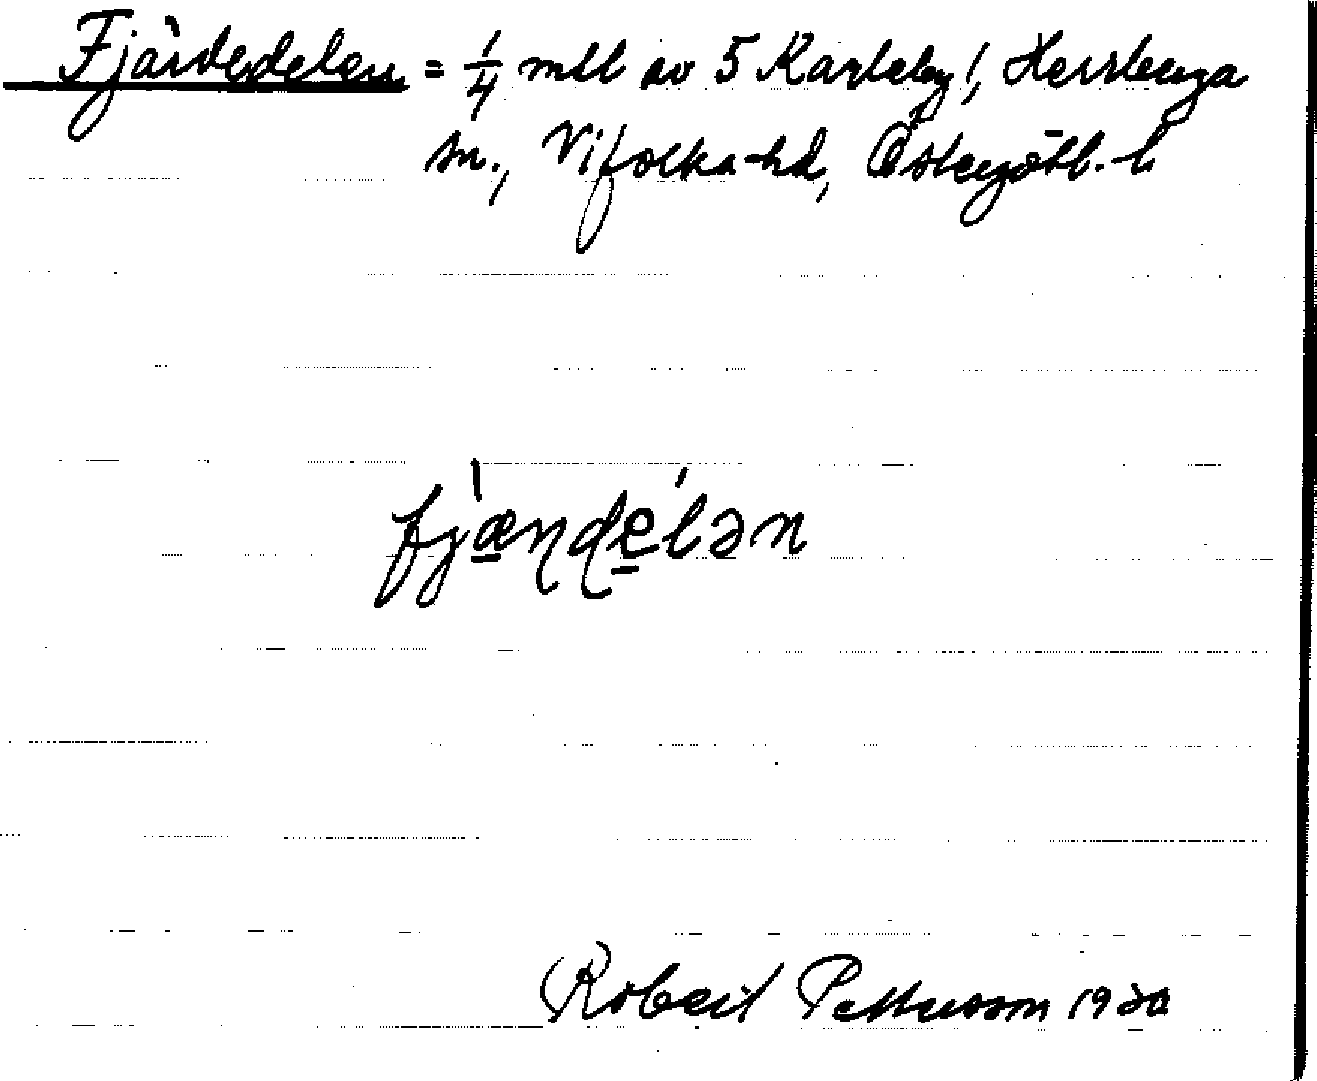 Fjärdedelen = 1/4 mtl av 5 Karleby!, Herrberga
sn., Vifolka-hd, Östergötl.-l
fjæ̠̀ɳɖé̠lən
Robert Pettersson 1930